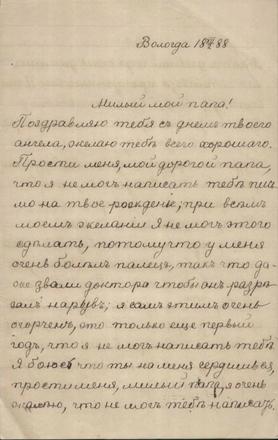 Вологда 18 88
Милый мой папа!
Поздравляю тебя съ днемъ твоего
ангела, желаю тебѣ всего хорошаго.
Прости меня, мой дорогой папа,
что я не могъ написать тебѣ пись
мо на твое рожденье; при всемъ
моемъ желаніи я не могъ этого
сдѣлать, потому что у меня
очень болѣлъ палецъ, такъ что да-
же звали доктора чтобы онъ разрѣ
залъ нарывъ; я самъ этимъ очень
огорченъ, это только еще первый
годъ, что я не могъ написать тебѣ.
Я боюсь что ты на меня сердишься,
прости меня, милый папа, я очень
жалѣю, что не могъ тебѣ написать,